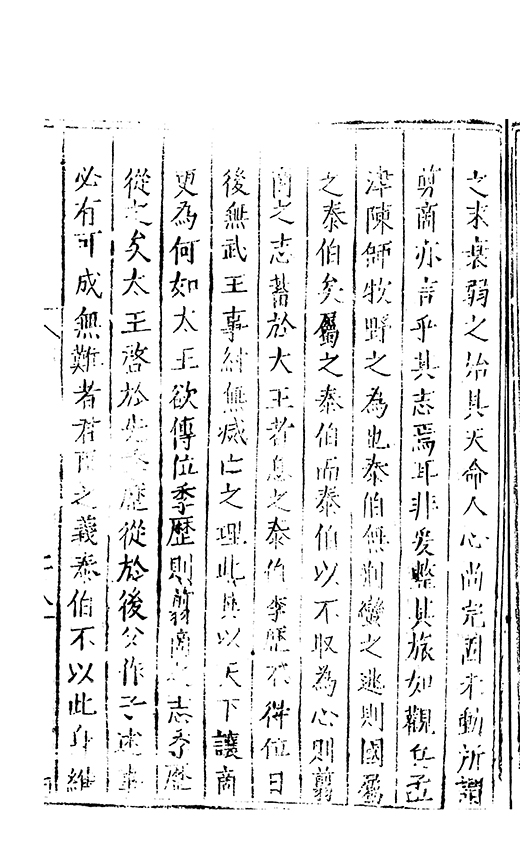 之末衰弱之始其天命人心尚完固未動所謂
剪商亦言乎其志焉耳非爰整其旅如觀兵孟
津陳師牧野之為也泰伯無荆蠻之逃則國屬
之泰伯矣屬之泰伯而泰伯以不取為心則翦
商之志蓄於大王者息之泰伯季歷不得位日
後無武王事紂無滅亡之理此其以天下讓商
更為何如太王欲傳位季歷則翦商之志季歷
從之矣太王啓於先季歷從於後父作子述事
必有可成無難者君臣之義泰伯不以此身維